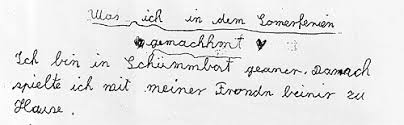 Was ich in dem Somerferien
gemachhmt
Ich bin in Schümmbart geaner. Danach
spielte ich mit meiner Frondn beinir zu
Hause.